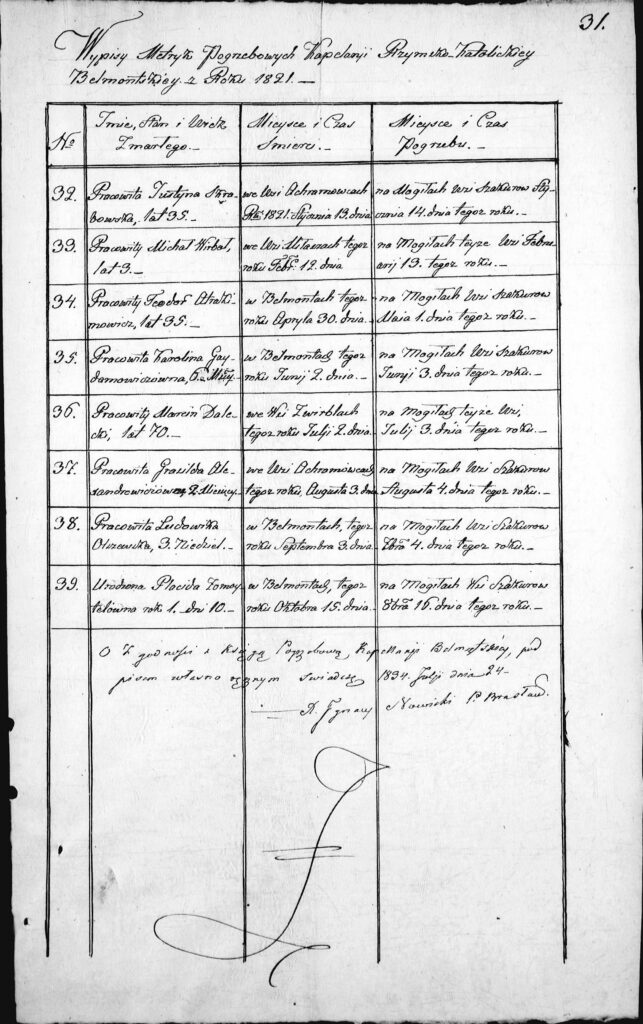 31.
Wypisy Metryk Pogrzebowych Kapelanji Rzymsko-Katolickiey
Belmontskiey z Roku 1821.—
No
Imie, Stan i Wiek
Zmarłego.—
Mieysce i Czas
Śmierci.—
Mieysce i Czas
Pogrzebu.—
32.
Pracowita Justyna
bowska, lat 35.—
we Wsi Achramowcach
Rku 1821. Stycznia 13. dnia
na Mogiłach Wsi Szałkurow Sty-
cznia 14. dnia tegoż roku.—
33.
Pracowity Michał Wirbał,
lat 3.—
we Wsi tegoż
roku Febr. 12. dnia
na Mogiłach teyże Wsi Febru-
arij 13. tegoż roku.—
34.
Pracowity Teodor
mowicz, lat 35.—
w Belmontach tegoż
roku Apryla 30. dnia.
na Mogiłach Wsi Szałkurow
Maia 1. dnia tegoż roku.—
35.
Pracowita Karolina Gay-
damowiczowna, 6.
w Belmontach tegoż
roku Junij 2. dnia.—
na Mogiłach Wsi Szałkurow
Junij 3. dnia tegoż roku.—
36.
Pracowity Marcin Dale-
cki, lat 70.—
we Wsi Zwirblach
tegoż roku Julij 2. dnia
na Mogiłach teyże Wsi,
Julij 3. dnia tegoż roku.—
37.
Pracowita Gracilda Ale-
xandrowiczowna 2 Miesięcy
we Wsi Achramowcach
tegoż roku, Augusta 3. dnia
na Mogiłach Wsi Szałkurow
Augusta 4. dnia tegoż roku.—
38.
Pracowita Ludowika
Olszewska, 3. Niedziel.—
w Belmontach, tegoż
roku Septembra 3. dnia
na Mogiłach Wsi Szałkurow
7bra 4. dnia tegoż roku.—
39.
Urodzona Placida Zomoy-
telowna rok 1. dni 10.—
w Belmontach, tegoż
roku Oktobra 15. dnia.
na Mogiłach Wsi Szałkurow
8bra 16. dnia tegoż roku.—
O Zgodności z Księgą Pogrzebową Kapellanji Belmontskiey, pod
pisem własno ręcznym świadczę 1834. Julij dnia 24—
X. Ignacy Nowicki P. Brasław.